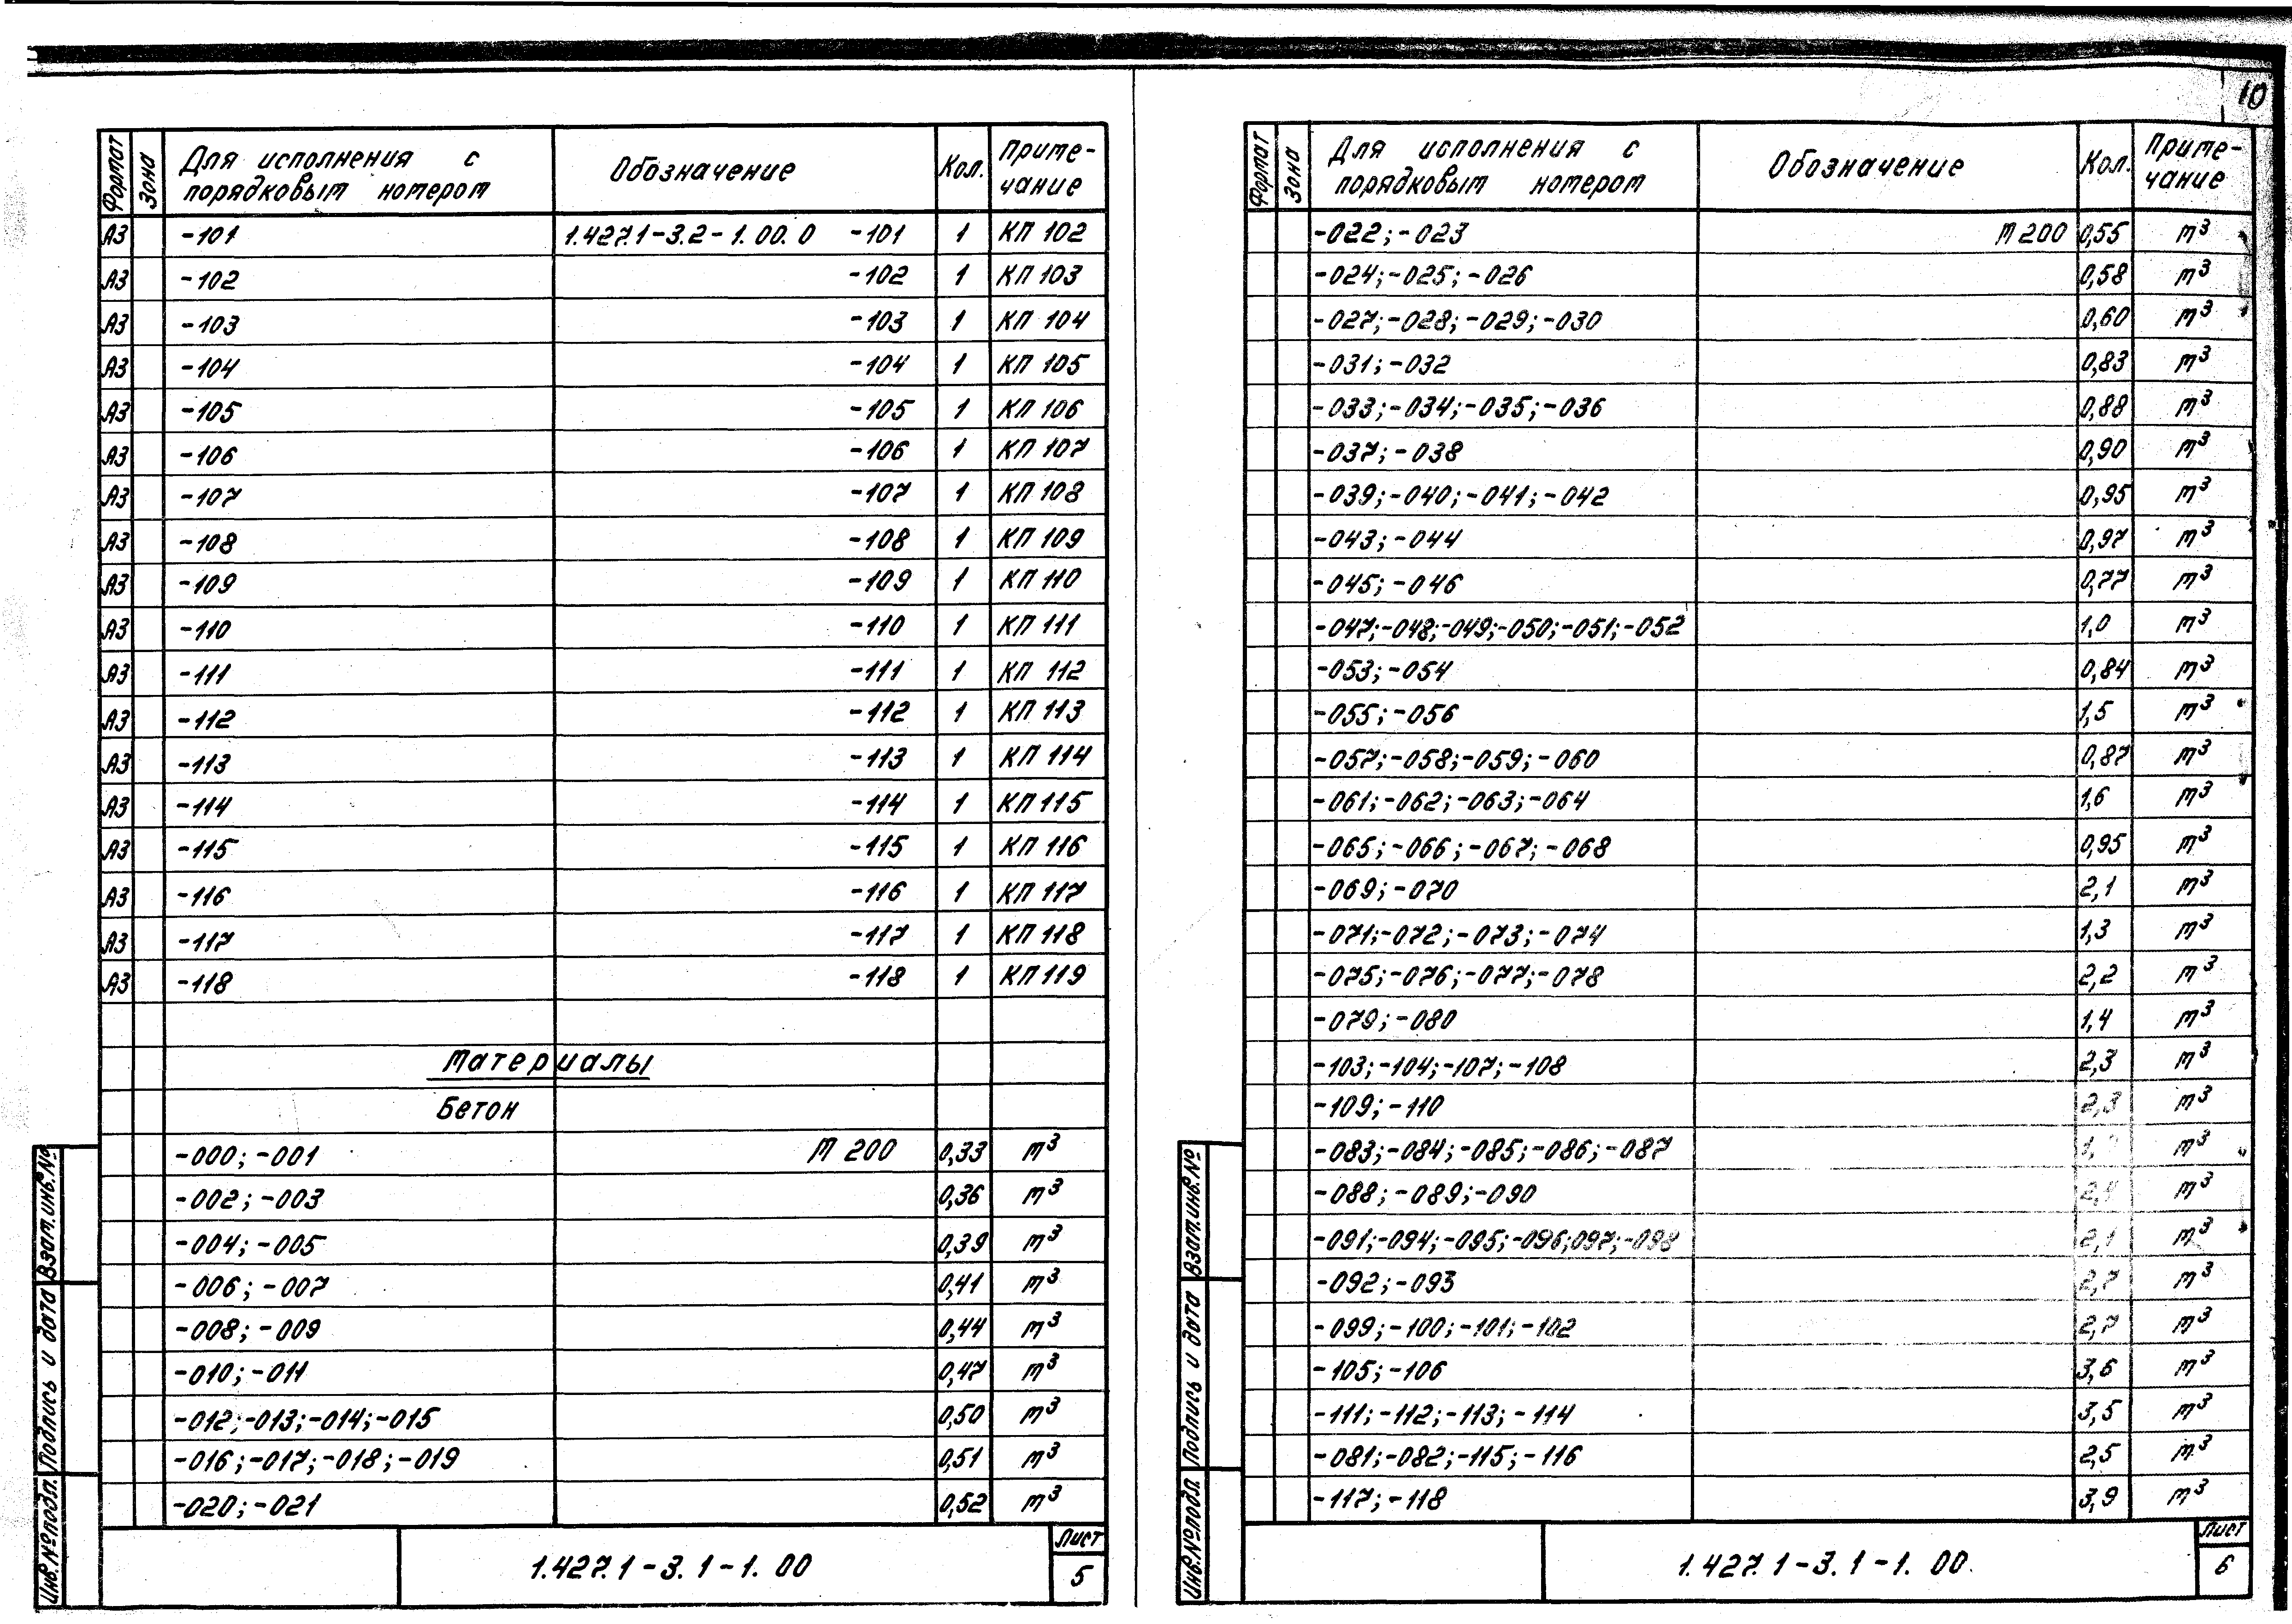 10
Формат Зона Для исполнения с порядковым номером Обозначение Кол. Приме-чание
А3 -101 1.427.1-3.2-1.00.0 -101 1 КП 102
А3 -102 -102 1 КП 103
А3 -103 -103 1 КП 104
А3 -104 -104 1 КП 105
А3 -105 -105 1 КП 106
А3 -106 -106 1 КП 107
А3 -107 -107 1 КП 108
А3 -108 -108 1 КП 109
А3 -109 -109 1 КП 110
А3 -110 -110 1 КП 111
А3 -111 -111 1 КП 112
А3 -112 -112 1 КП 113
А3 -113 -113 1 КП 114
А3 -114 -114 1 КП 115
А3 -115 -115 1 КП 116
А3 -116 -116 1 КП 117
А3 -117 -117 1 КП 118
А3 -118 -118 1 КП 119
Материалы
Бетон
-000; -001 М 200 0,33 м³
-002; -003 0,36 м³
-004; -005 0,39 м³
-006; -007 0,41 м³
-008; -009 0,44 м³
-010; -011 0,47 м³
-012; -013; -014; -015 0,50 м³
-016; -017; -018; -019 0,51 м³
-020; -021 0,52 м³
Инв.№подл. Подпись и дата Взам.инв.№
1.427.1-3.1-1.00
Лист
5
Формат Зона Для исполнения с порядковым номером Обозначение Кол. Приме-чание
-022; -023 М 200 0,55 м³
-024; -025; -026 0,58 м³
-027; -028; -029; -030 0,60 м³
-031; -032 0,83 м³
-033; -034; -035; -036 0,88 м³
-037; -038 0,90 м³
-039; -040; -041; -042 0,95 м³
-043; -044 0,97 м³
-045; -046 0,77 м³
-047; -048; -049; -050; -051; -052 1,0 м³
-053; -054 0,84 м³
-055; -056 1,5 м³
-057; -058; -059; -060 0,87 м³
-061; -062; -063; -064 1,6 м³
-065; -066; -067; -068 0,95 м³
-069; -070 2,1 м³
-071; -072; -073; -074 1,3 м³
-075; -076; -077; -078 2,2 м³
-079; -080 1,4 м³
-103; -104; -107; -108 2,3 м³
-109; -110 2,3 м³
-083; -084; -085; -086; -087 м³
-088; -089; -090 2,4 м³
-091; -094; -095; -096; 097; -098 2,1 м³
-092; -093 2,7 м³
-099; -100; -101; -102 2,7 м³
-105; -106 3,6 м³
-111; -112; -113; -114 3,5 м³
-081; -082; -115; -116 2,5 м³
-117; -118 3,9 м³
Инв.№подл. Подпись и дата Взам.инв.№
1.427.1-3.1-1.00
Лист
6